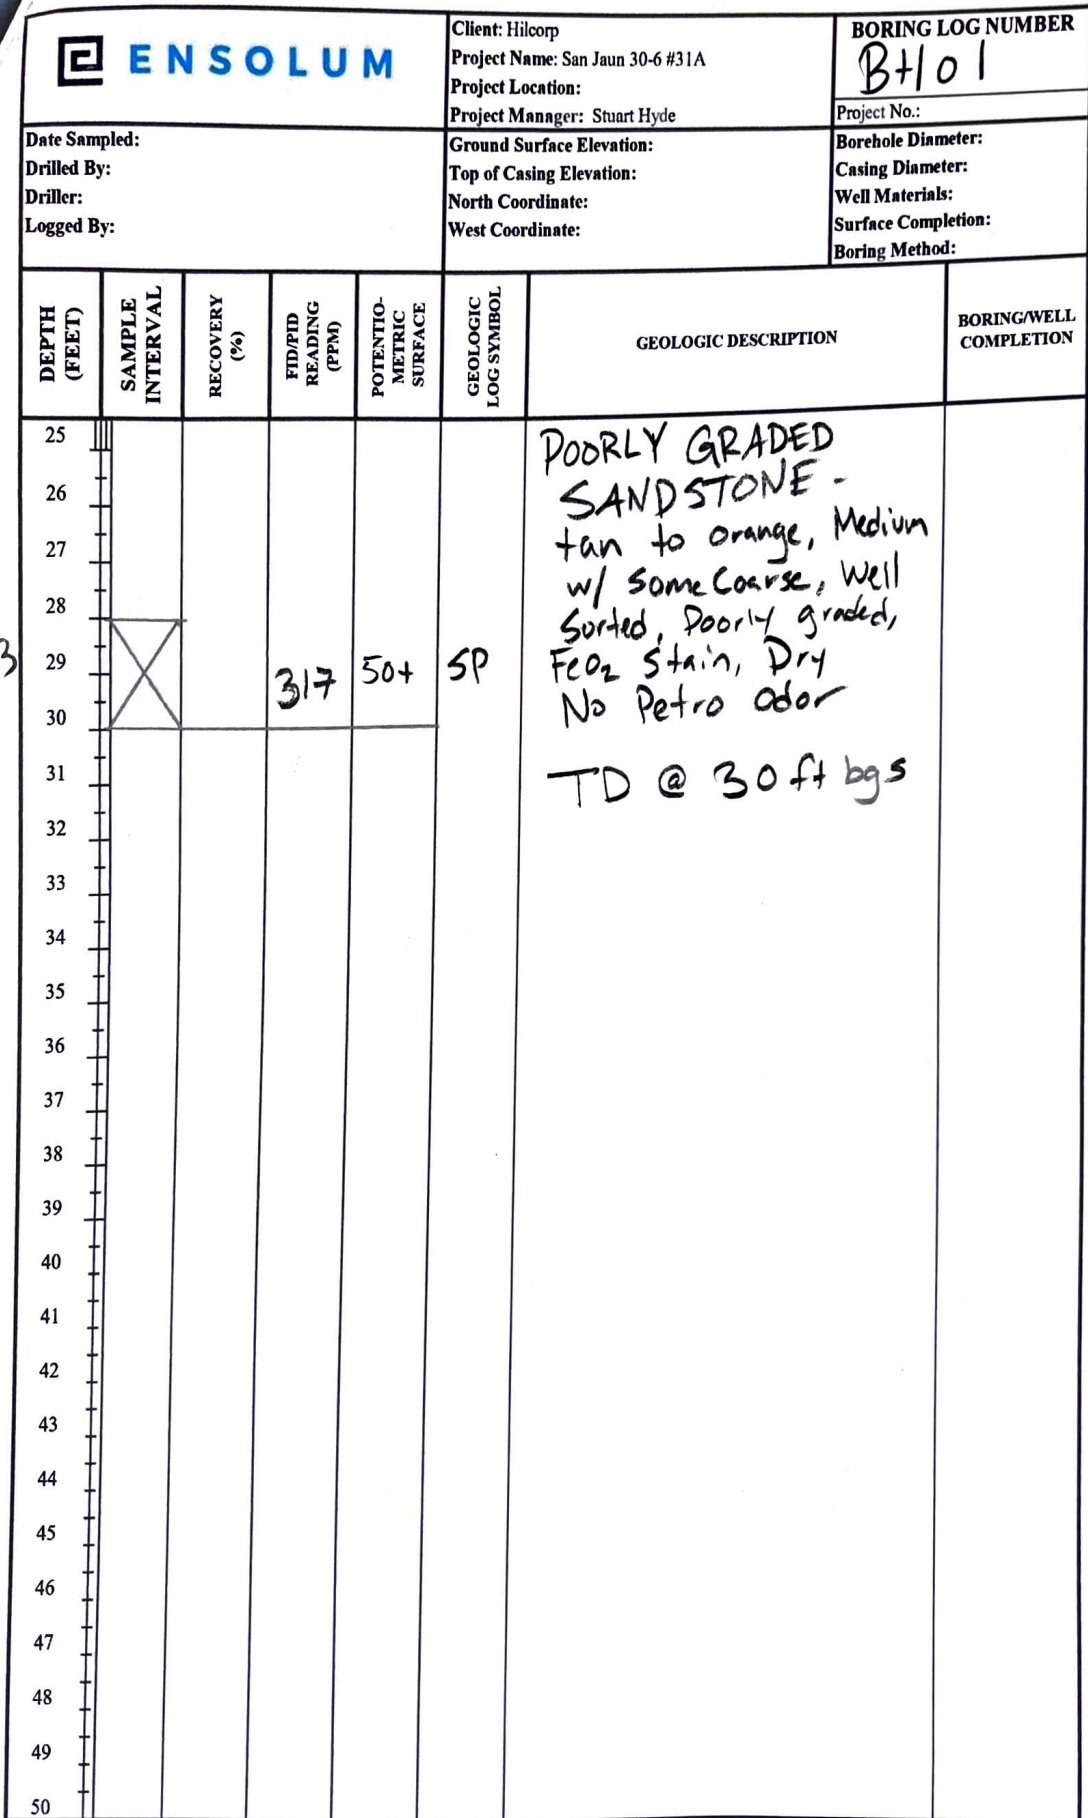 ENSOLUM
Client: Hilcorp
Project Name: San Jaun 30-6 #31A
Project Location:
Project Manager: Stuart Hyde
BORING LOG NUMBER
BH01
Project No.:
Date Sampled:
Drilled By:
Driller:
Logged By:
Ground Surface Elevation:
Top of Casing Elevation:
North Coordinate:
West Coordinate:
Borehole Diameter:
Casing Diameter:
Well Materials:
Surface Completion:
Boring Method:
DEPTH
(FEET)
SAMPLE
INTERVAL
RECOVERY
(%)
FID/PID
READING
(PPM)
POTENTIO-
METRIC
SURFACE
GEOLOGIC
LOG SYMBOL
GEOLOGIC DESCRIPTION
BORING/WELL
COMPLETION
25
26
27
28
29
30
31
32
33
34
35
36
37
38
39
40
41
42
43
44
45
46
47
48
49
50
3
317
50+
SP
POORLY GRADED
SANDSTONE -
tan to orange, Medium
w/ some Coarse, Well
Sorted, Poorly graded,
FeO₂ Stain, Dry
No Petro Odor
TD @ 30 ft bgs